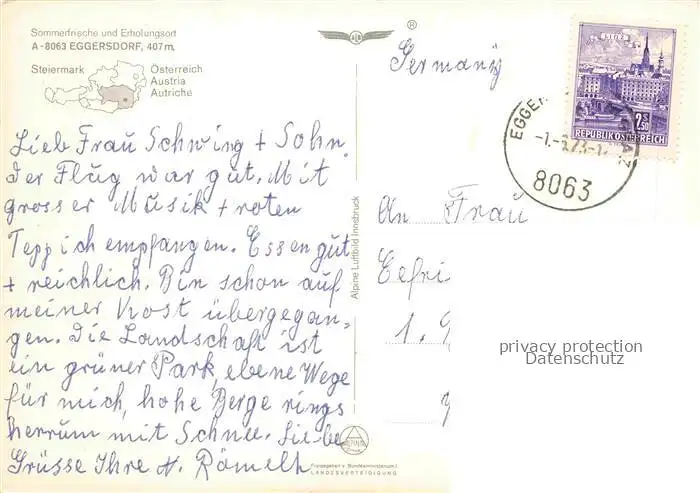 Sommerfrische und Erholungsort
A-8063 EGGERSDORF, 407 m.
Steiermark
Österreich
Austria
Autriche
Lieb Frau Schwing + Sohn
Der Flug war gut. Mit
grosser Musik + roten
Teppich empfangen. Essen gut
+ reichlich. Bin schon auf
meiner Kost übergegan-
gen. Die Landschaft ist
ein grüner Park, ebene Wege
für mich, hohe Berge rings
herrum mit Schnee. Liebe
Grüsse Ihre H. Römelt
Alpine Luftbild Innsbruck
Freigegeben v. Bundesministerium f.
LANDESVERTEIDIGUNG
®
Germany
LINZ
2.50 S
REPUBLIK ÖSTERREICH
8063
An Frau
1.
privacy protection
Datenschutz